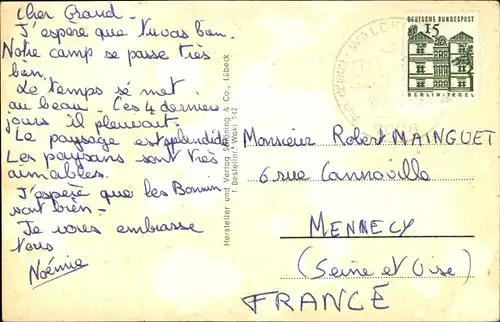 Cher Grand.
J'espère que tu vas bien.
Notre camp se passe très
bien.
Le temps se met
au beau. Ces 4 dernier
jours il pleuvait.
Le paysage est splendide
Les paysans sont très
aimables.
J'espère que les
sont bien -
Je vous embrasse
tous
Noémie
Hersteller und Verlag Schöning & Co., Lübeck
Bestellnr. 142
DEUTSCHE BUNDESPOST
15
BERLIN-TEGEL
Monsieur Robert MAINGUET
6 rue Cannoville
MENNECY
(Seine et Oise)
FRANCE